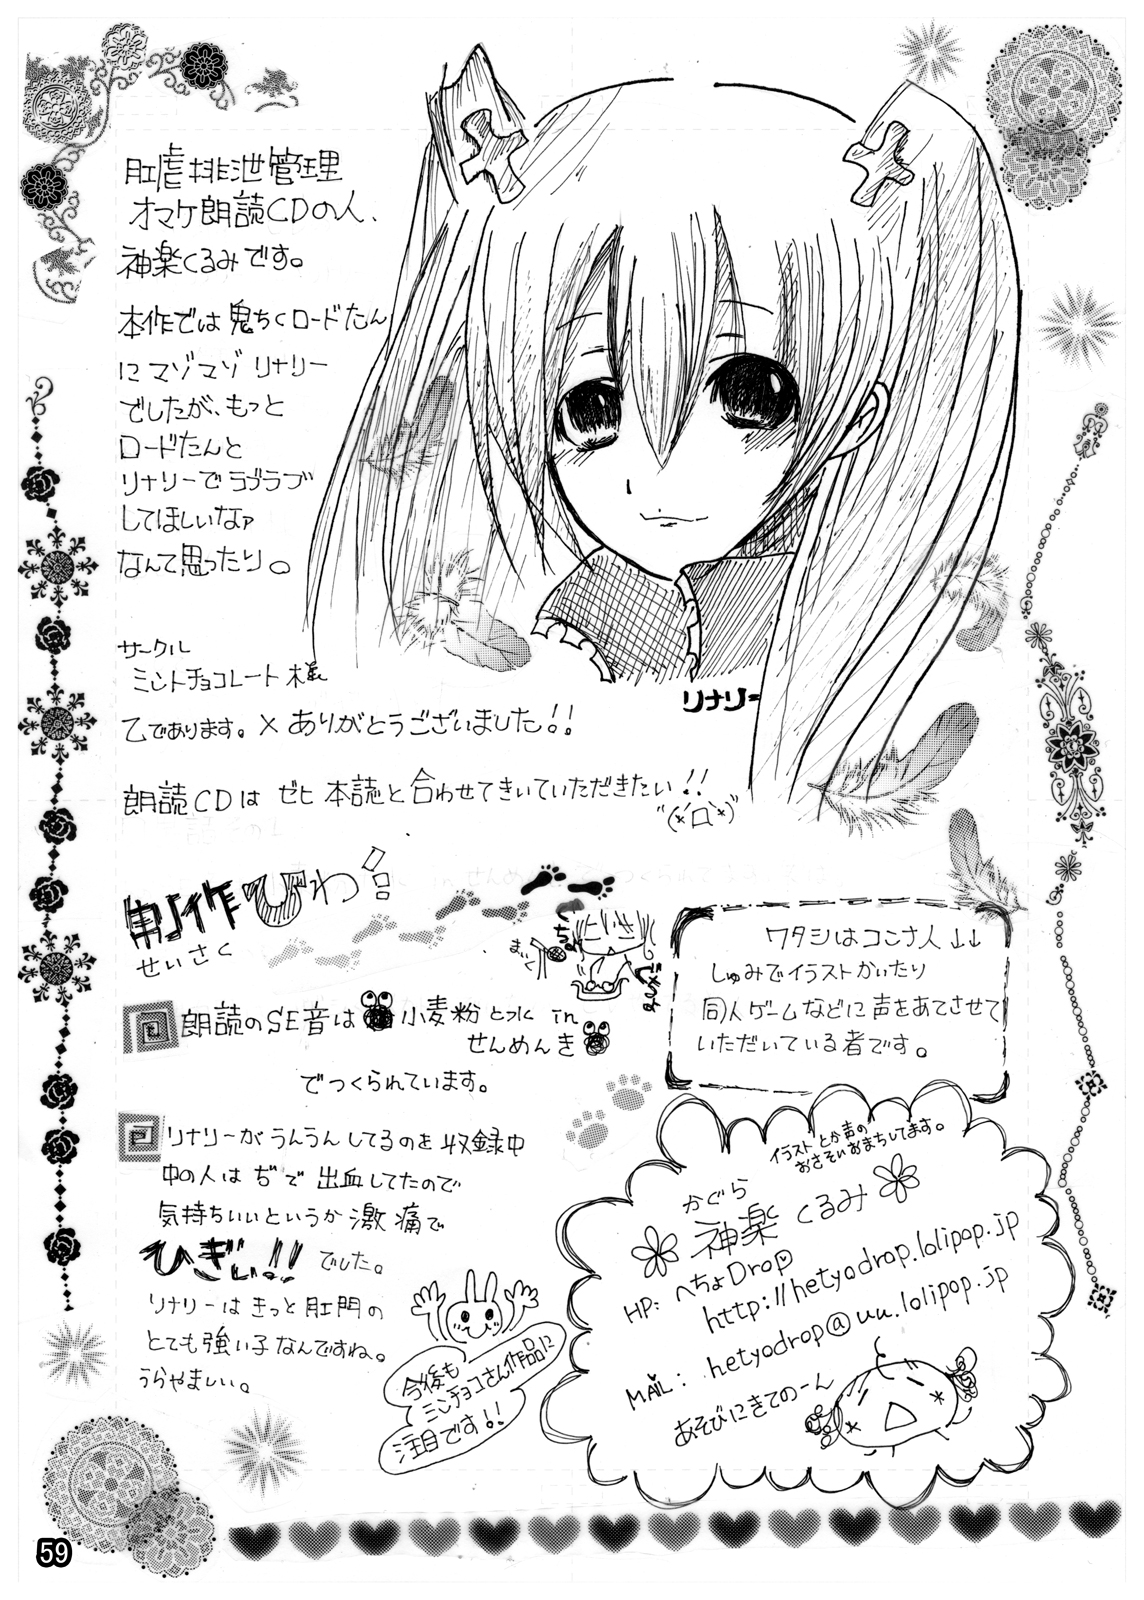 肛虐排泄管理
オマケ朗読CDの人、
神楽くるみです。
本作では鬼ちくロードたん
にマゾマゾリナリー
でしたが、もっと
ロードたんと
リナリーでラブラブ
してほしいなァ
なんて思ったり。
サークル
ミントチョコレート様
乙であります。×ありがとうございました!!
朗読CDはゼヒ本誌と合わせてきいていただきたい!!
リナリー
制作ひわ
せいさく
朗読のSE音は小麦粉と水in
せんめんき
でつくられています。
リナリーがうんうんしてるのを収録中
中の人はぢで出血してたので
気持ちいいというか激痛で
ひぎぃ!!でした。
リナリーはきっと肛門の
とても強い子なんですね。
うらやましい。
今後も
ミンチョコさん作品に
注目です!!
ワタシはコンナ人↓↓
しゅみでイラストかいたり
同人ゲームなどに声をあてさせて
いただいている者です。
イラストとか声の
おさそいおまちしてます。
かぐら
神楽くるみ
HP: へちょDrop
http://hetyodrop.lolipop.jp
MAIL: hetyodrop@uu.lolipop.jp
あそびにきてのーん
59